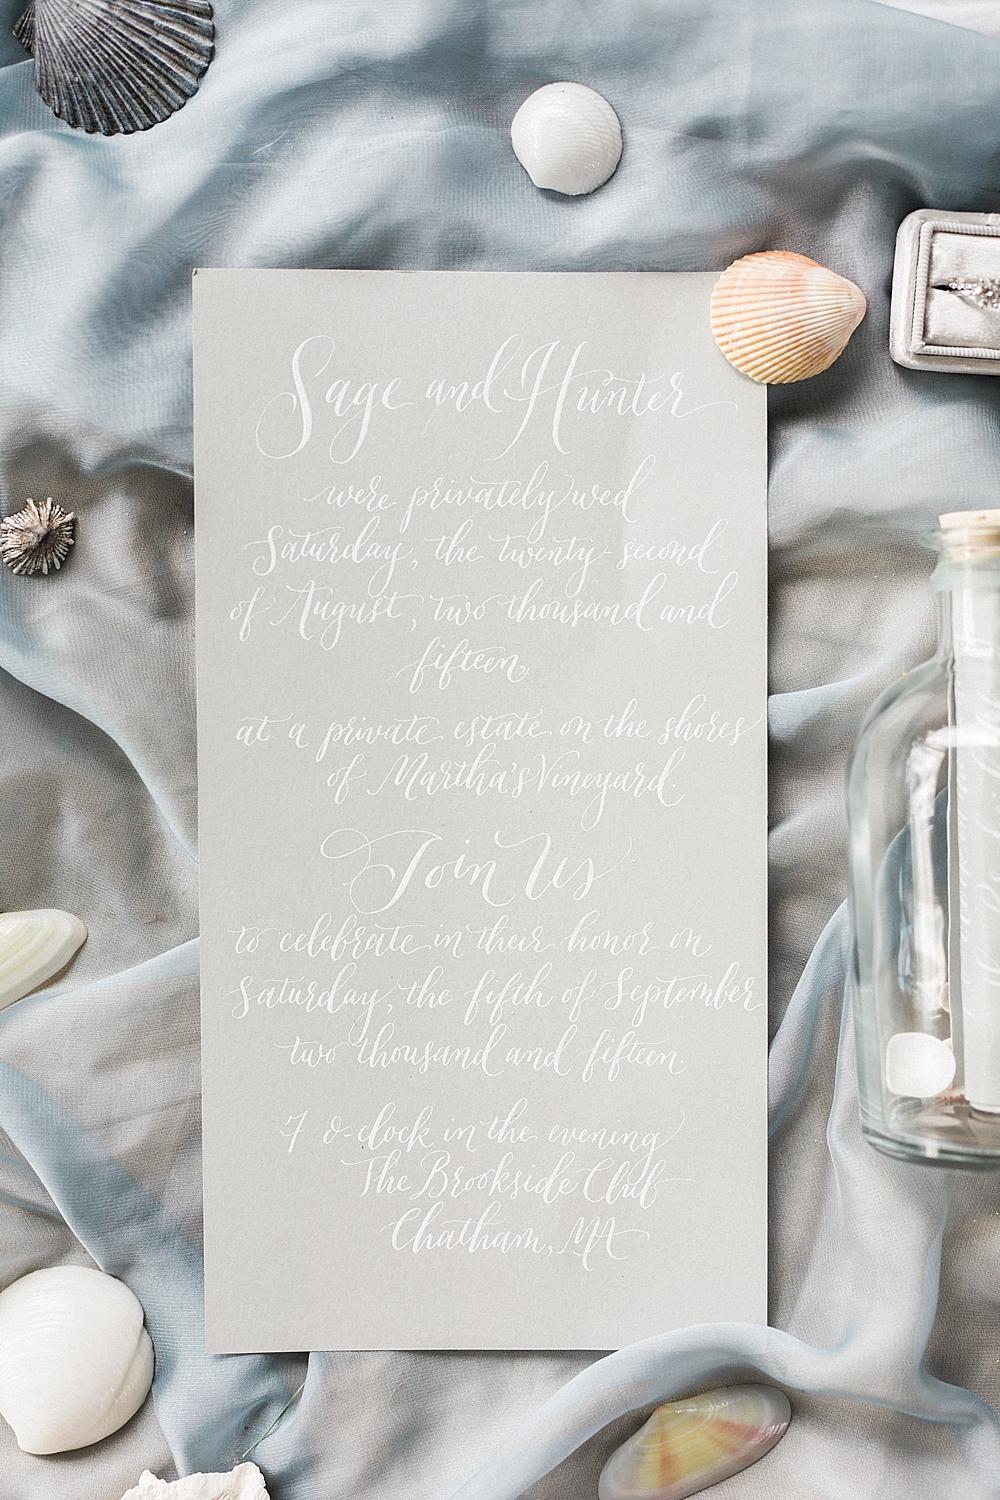 Sage and Hunter
were privately wed
Saturday, the twenty-second
of August, two thousand and
fifteen,
at a private estate on the shores
of Martha's Vineyard.
Join Us
to celebrate in their honor on
Saturday, the fifth of September
two thousand and fifteen.
7 o-clock in the evening
The Brookside Club
Chatham, MA